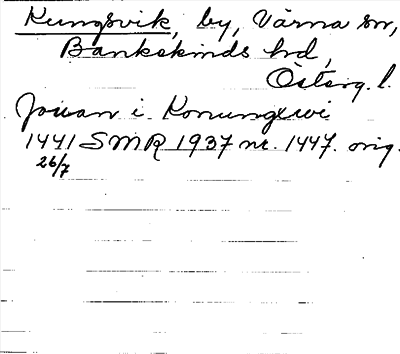 Kungsvik, by, Värna sn,
Bankekinds hd,
Österg. l.
Jowan i Konungxwi
1441 SMR 1937 nr. 1447. orig.
26/7